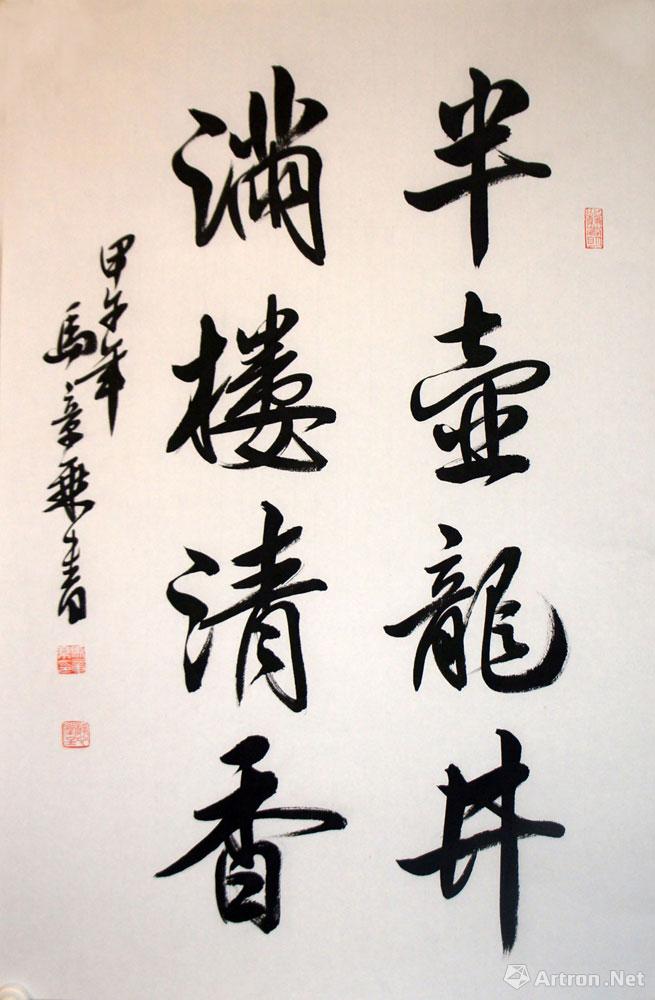 半壺龍井
滿楼清香
甲午年
馬章乗书
Artron.Net